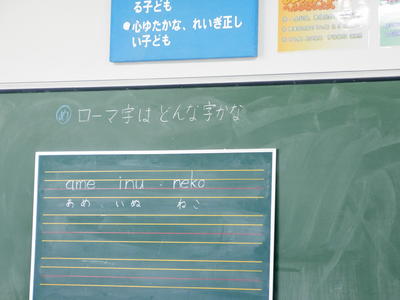 る子ども
●心ゆたかな、れいぎ正し
い子ども
め ローマ字は どんな字かな
ame inu neko
あめ いぬ ねこ